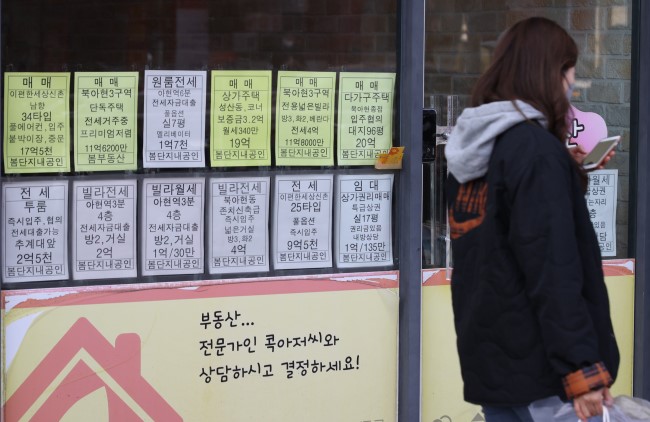 매 매
이편한세상신촌
남향
34타입
풀에어컨, 입주
붙박이장, 중문
17억5천
봄단지내공인
매 매
북아현3구역
단독주택
전세승계
프리미엄저렴
11억6200만
봄부동산
원룸전세
이현역6분
전세자금대출
풀옵션
실7평
엘리베이터
1억7천
봄단지내공인
매 매
상가주택
성산동, 코너
보증금3.2억
월세340만
19억
봄단지내공인
매 매
북아현3구역
전용넓은빌라
방3, 화2, 베란다
전세4억
11억8000만
봄단지내공인
매 매
다가구주택
북아현종점
입주협의
대지96평
20억
봄단지내공인
전 세
투룸
즉시입주, 협의
전세대출가능
추계대앞
2억5천
봄단지내공인
빌라전세
아현역3분
4층
전세자금대출
방2, 거실
2억
봄단지내공인
빌라월세
아현역3분
4층
방2, 거실
1억/30만
봄단지내공인
빌라전세
북아현동
존치신축급
즉시입주
넓은거실
방3, 화2
4억
봄단지내공인
전 세
이편한세상신촌
25타입
풀옵션
즉시입주
9억5천
봄단지내공인
임 대
상가권리매매
특급상권
실17평
권리금있음
내방상담
1억/135만
봄단지내공인
부동산...
전문가인 콕아저씨와
상담하시고 결정하세요!